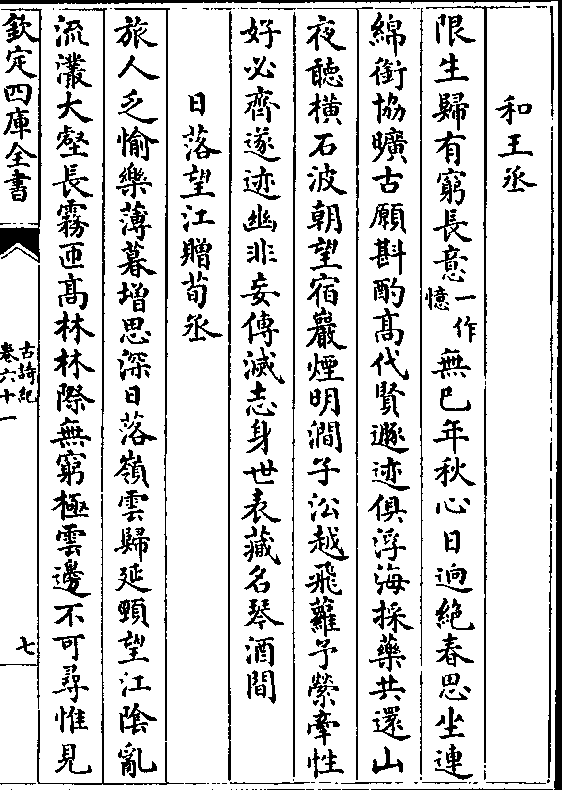 和王丞
限生歸有窮長意一作憶無已年秋心日逈絶春思坐連
綿銜協曠古願斟酌髙代賢遯迹俱浮海採藥共還山
夜聽横石波朝望宿巖煙明澗子㳂越飛蘿予縈牽性
好必齊遂迹幽非妄傳滅志身世表藏名琴酒間
日落望江贈荀丞
旅人乏愉樂薄暮增思深日落嶺雲歸延頸望江隂亂
流灇大壑長霧匝髙林林際無窮極雲邊不可尋惟見
欽定四庫全書
古詩紀
卷六十一
七